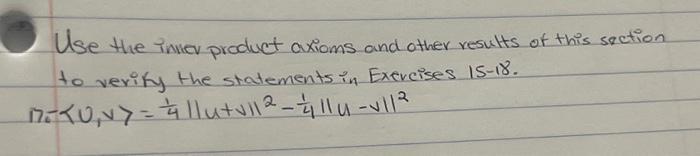 Use the inner product axioms and other results of this section
to verify the statements in Exercises 15-18.
17. <U,v> = 1/4 ||u+v||² - 1/4 ||u-v||²